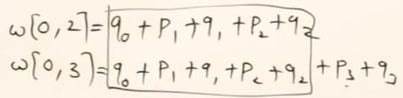 w[0,2]=q₀+P₁+q₁+P₂+q₂
w[0,3]=q₀+P₁+q₁+P₂+q₂+P₃+q₃